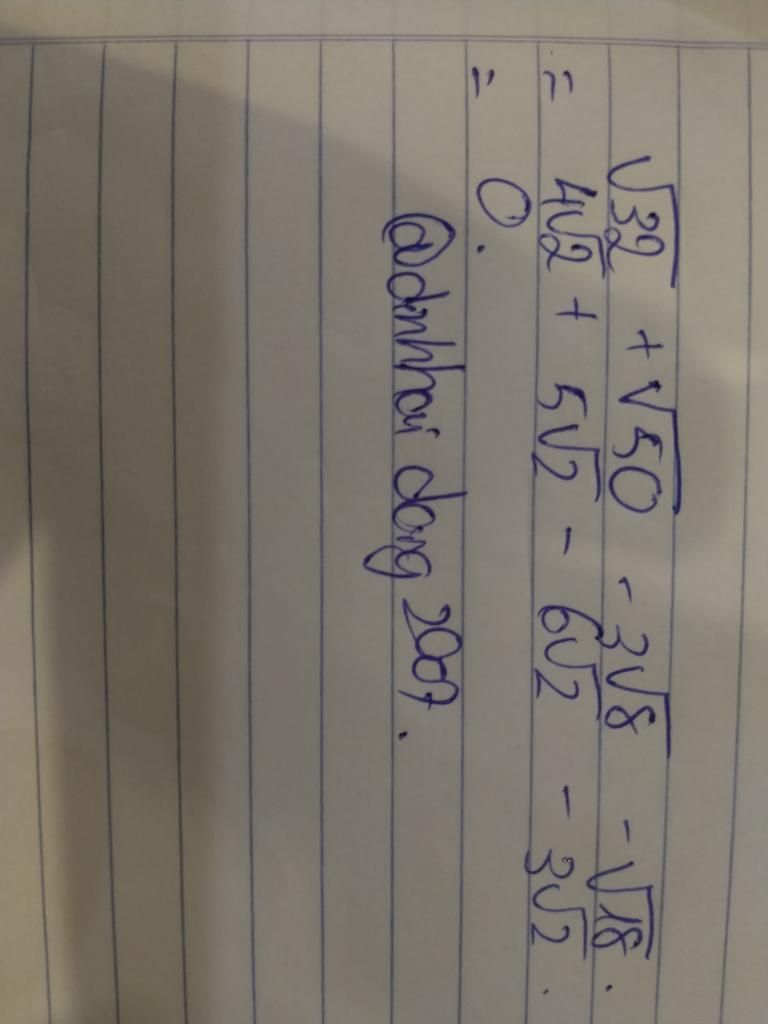 √32 + √50 - 3√8 - √18.
= 4√2 + 5√2 - 6√2 - 3√2.
= 0.
@dinhhai dang 2007.